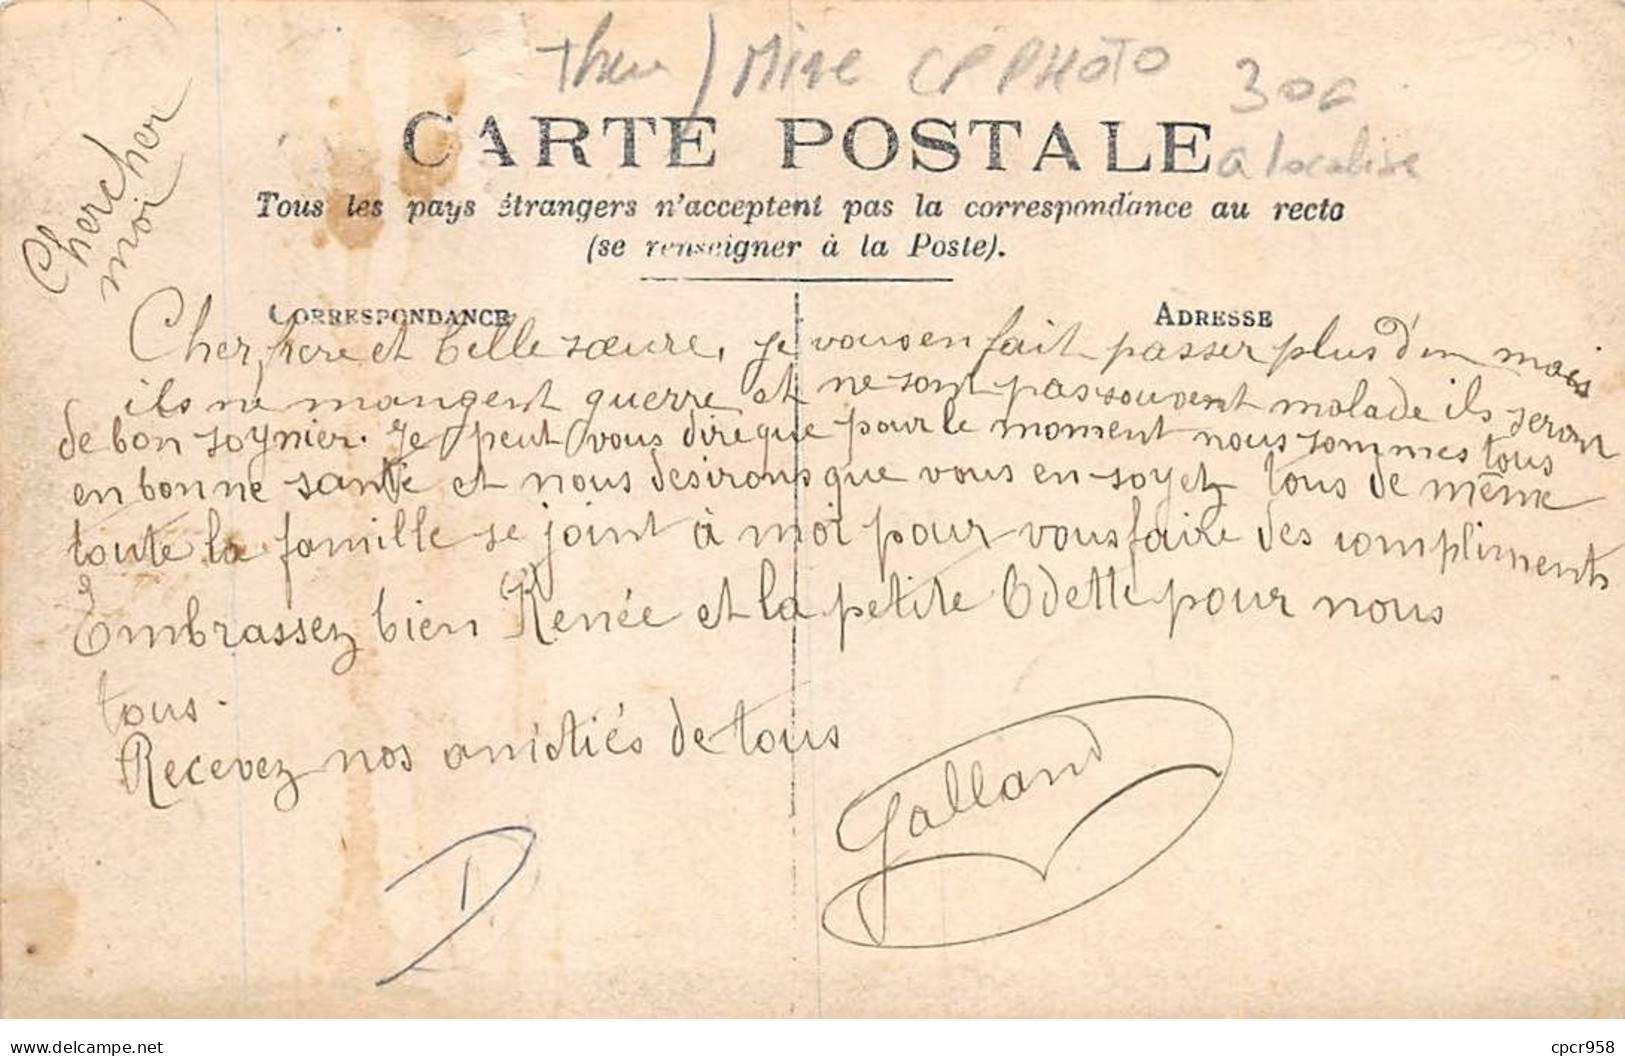 Mine CP PHOTO
300
a localise
CARTE POSTALE
Tous les pays étrangers n'acceptent pas la correspondance au recto
(se renseigner à la Poste).
Chercher
moi
CORRESPONDANCE
ADRESSE
Cher frere et belle sœure, je vous en fait passer plus d'un mois
ils ne mangent guerre et ne sont pas souvent malade ils seront
de bon soynier. Je peut vous dire que pour le moment nous sommes tous
en bonne santé et nous desirons que vous en soyez tous de même
toute la famille se joint à moi pour vous faire des compliments
Embrassez bien Renée et la petite Odette pour nous
tous.
Recevez nos amitiés de tous
Galland
D
cpcr958